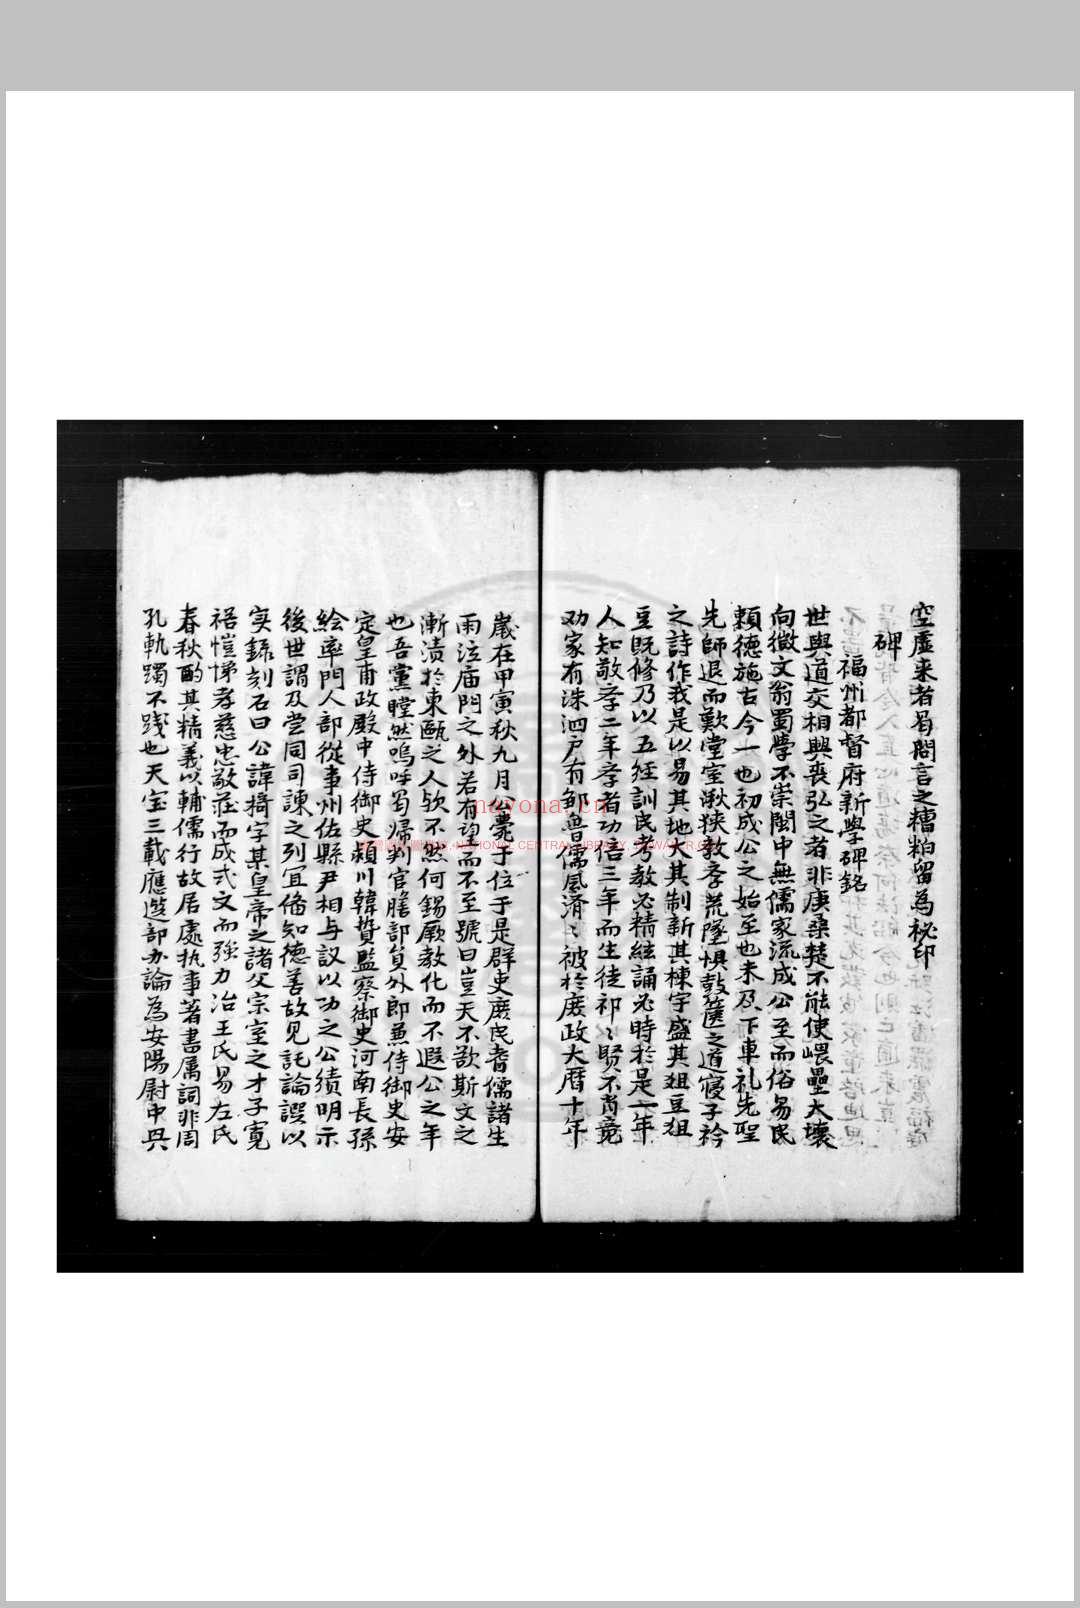 空虛来者曷問言之糟粕留為秘印
碑
福州都督府新學碑銘
世與道交相興喪弘之者非庚桑楚不能使嵔壘大壤
向微文翁蜀學不崇閩中無儒家流成公至而俗易民
賴德施古今一也初成公之始至也未及下車礼先聖
先師退而歎堂室湫狹敦孝荒墜懼鼓篋之道寝子衿
之詩作我是以易其地大其制新其棟宇盛其爼豆爼
豆既修乃以五経訓民考教必精絃誦必時於是一年
人知敬孝二年孝者功倍三年而生徒祁〻賢不肖竞
劝家有洙泗户有鄒魯儒風済〻被於庻政大暦十年
歲在甲寅秋九月公薨于位于是群吏庻民耆儒諸生
雨泣庙門之外若有望而不至號曰豈天不欲斯文之
漸漬於東甌之人欤不然何錫厥教化而不遐公之年
也吾黨瞠然嗚呼蜀㷌判官膳部負外郎兼侍御史安
定皇甫政殿中侍御史潁川韓贄監察御史河南長孫
绘率門人部從事州佐縣尹相与议以功之公績明示
後世謂及尝同司諫之列宜俻知德善故见託論譔以
实錄刻石曰公諱掎字某皇帝之諸父宗室之才子寬
裕愷悌孝慈忠敬莊而成式文而强力治王氏易左氏
春秋酌其精義以輔儒行故居處执事著書属詞非周
孔軌躅不踐也天宝三載應选部办論為安陽尉中兴
nayona.cn
NATIONAL CENTRAL LIBRARY